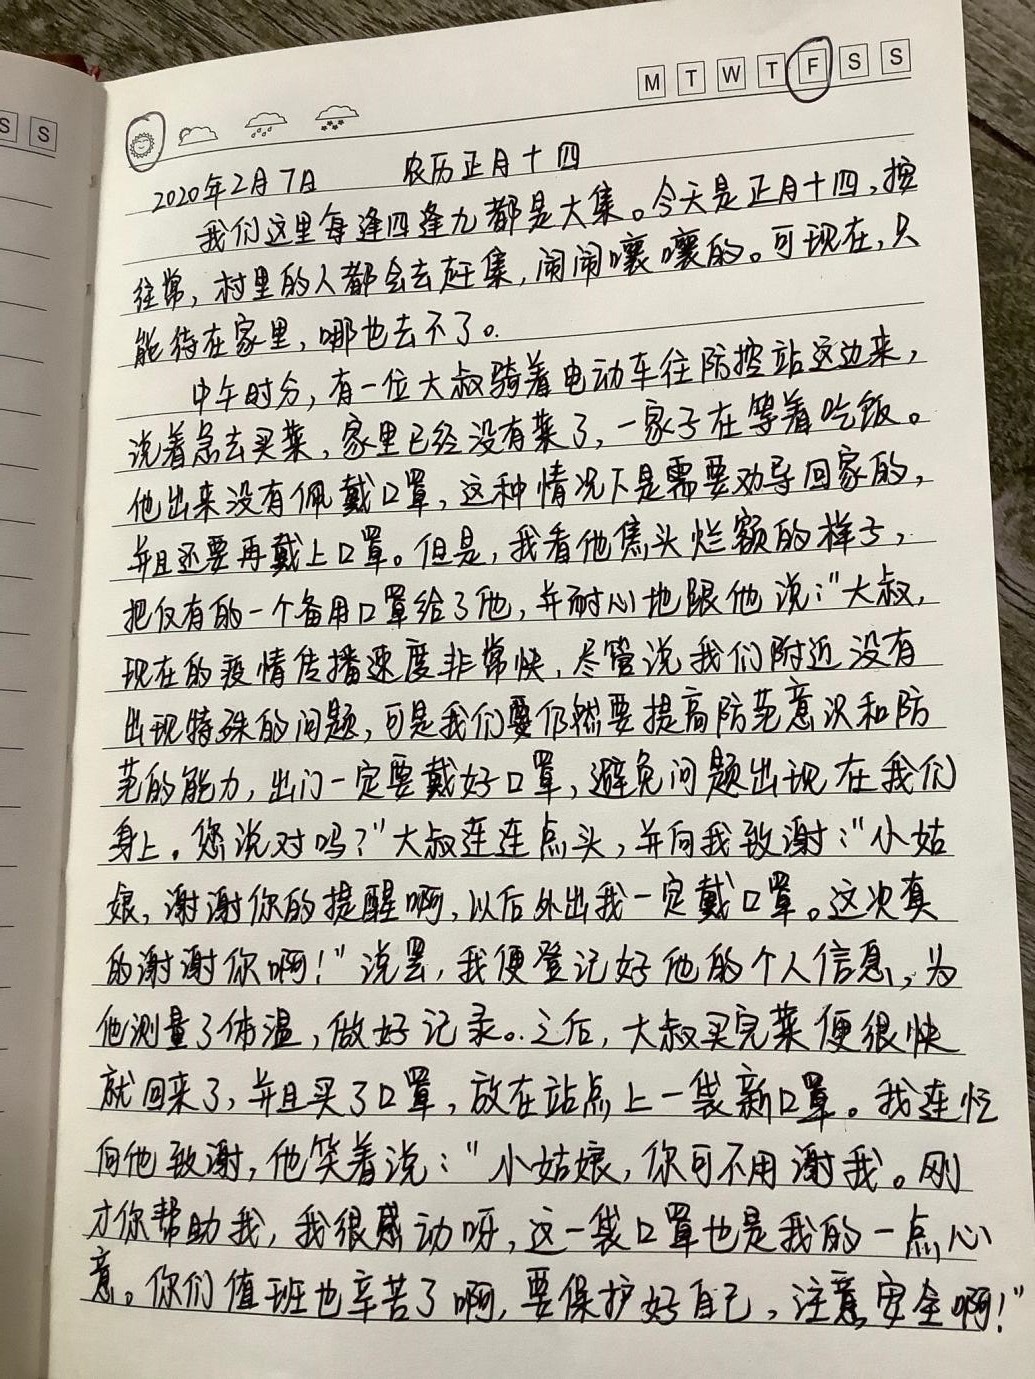 S S
M T W T F S S
2020年2月7日 农历正月十四
我们这里每逢四逢九都是大集。今天是正月十四,按
往常,村里的人都会去赶集,闹闹嚷嚷的。可现在,只
能待在家里,哪也去不了。
中午时分,有一位大叔骑着电动车往防控站这边来,
说着急去买菜,家里已经没有菜了,一家子在等着吃饭。
他出来没有佩戴口罩,这种情况下是需要劝导回家的,
并且还要再戴上口罩。但是,我看他焦头烂额的样子,
把仅有的一个备用口罩给了他,并耐心地跟他说:"大叔,
现在的疫情传播速度非常快,尽管说我们附近没有
出现特殊的问题,可是我们要仍然要提高防范意识和防
范的能力,出门一定要戴好口罩,避免问题出现在我们
身上。您说对吗?"大叔连连点头,并向我致谢:"小姑
娘,谢谢你的提醒啊,以后外出我一定戴口罩。这次真
的谢谢你啊!"说罢,我便登记好他的个人信息,为
他测量了体温,做好记录。之后,大叔买完菜便很快
就回来了,并且买了口罩,放在站点上一袋新口罩。我连忙
向他致谢,他笑着说:"小姑娘,你可不用谢我。刚
才你帮助我,我很感动呀,这一袋口罩也是我的一点心
意。你们值班也辛苦了啊,要保护好自己,注意安全啊!"